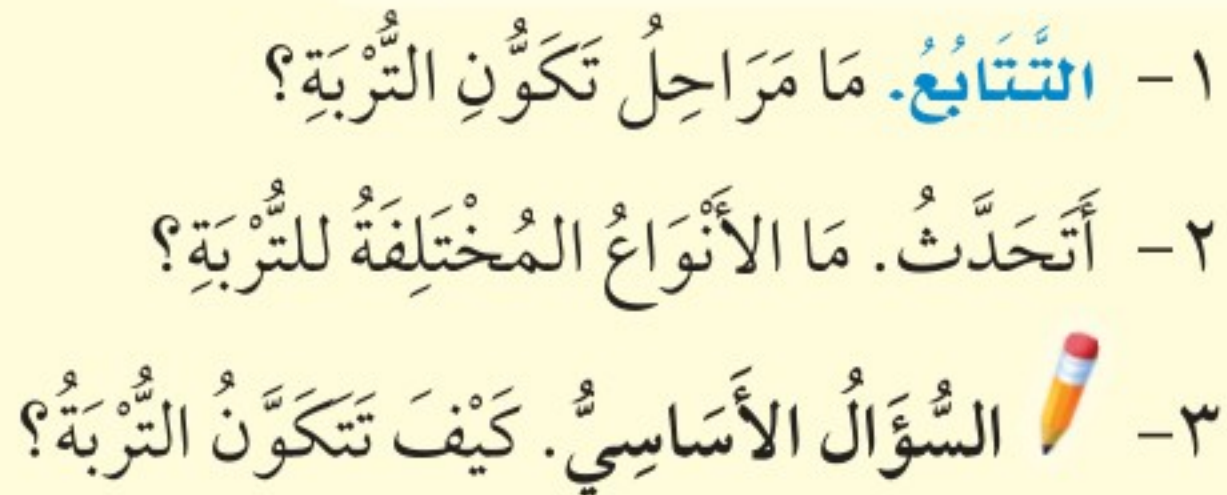 ١ - التَّتَابُعُ. مَا مَرَاحِلُ تَكَوُّنِ التُّرْبَةِ؟
٢ - أَتَحَدَّثُ. مَا الأَنْوَاعُ المُخْتَلِفَةُ للتُّرْبَةِ؟
٣- السُّؤَالُ الأَسَاسِيُّ. كَيْفَ تَتَكَوَّنُ التُّرْبَةُ؟